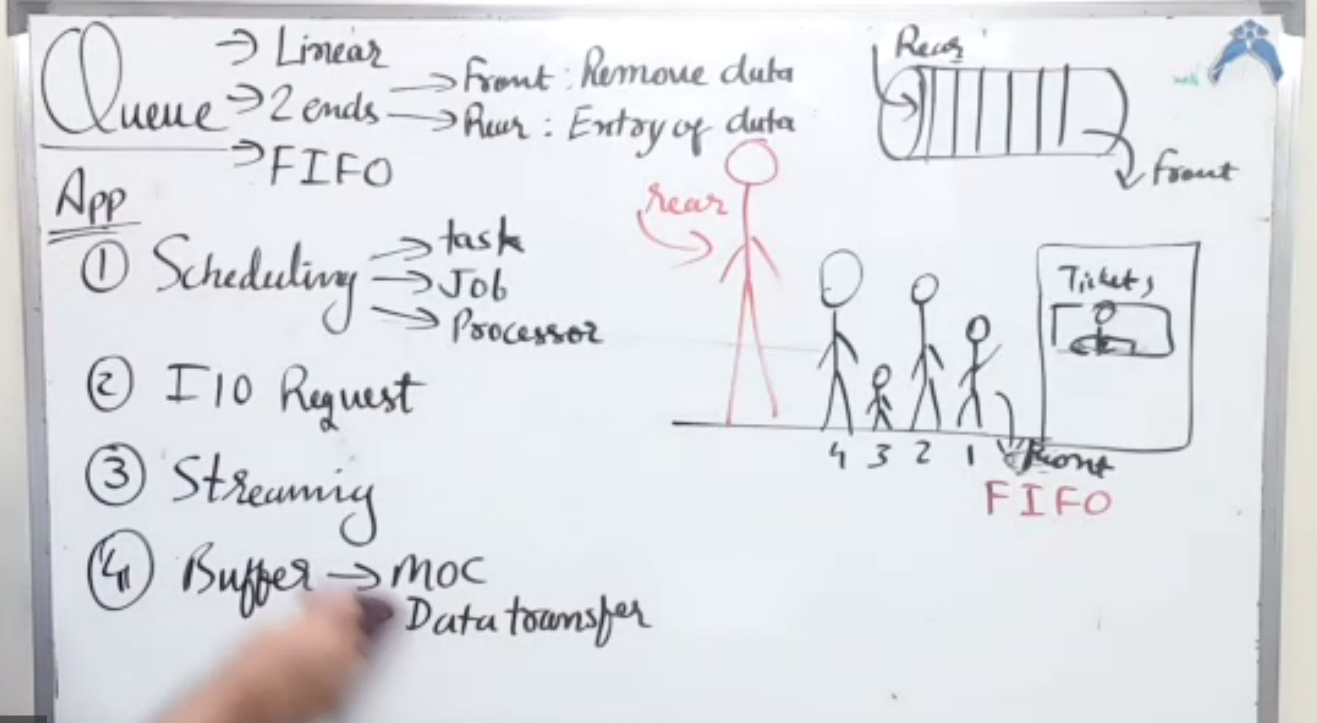 Queue → Linear
→ 2 ends → Front : Remove data
→ Rear : Entry of data
→ FIFO
App
① Scheduling → task
→ Job
→ Processor
② I/O Request
③ Streaming
④ Buffer → MOC
Data transfer
Rear
Front
rear
Tickets
4 3 2 1 Front
FIFO